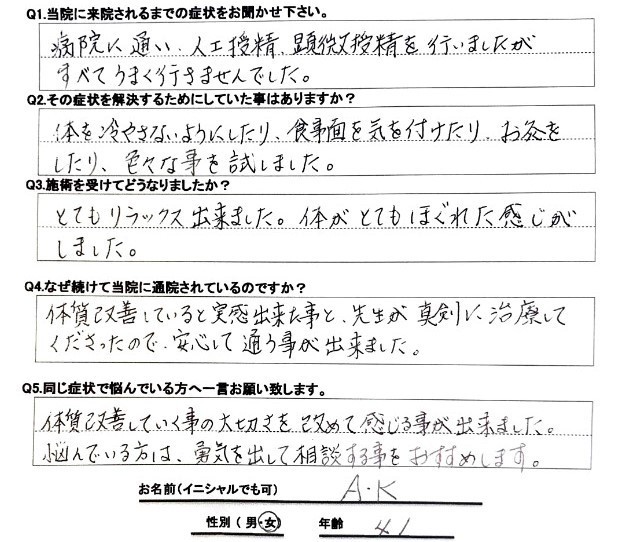 Q1.当院に来院されるまでの症状をお聞かせ下さい。
病院に通い、人工授精、顕微授精を行いましたが
すべてうまく行きませんでした。
Q2.その症状を解決するためにしていた事はありますか？
体を冷やさないようにしたり、食事面を気を付けたり、お灸を
したり、色々な事を試しました。
Q3.施術を受けてどうなりましたか？
とてもリラックス出来ました。体がとてもほぐれた感じが
しました。
Q4.なぜ続けて当院に通院されているのですか？
体質改善していると実感出来た事と、先生が真剣に治療して
くださったので、安心して通う事が出来ました。
Q5.同じ症状で悩んでいる方へ一言お願い致します。
体質改善していく事の大切さを改めて感じる事が出来ました。
悩んでいる方は、勇気を出して相談する事をおすすめします。
お名前(イニシャルでも可) A・K
性別 (男・女) 年齢 41